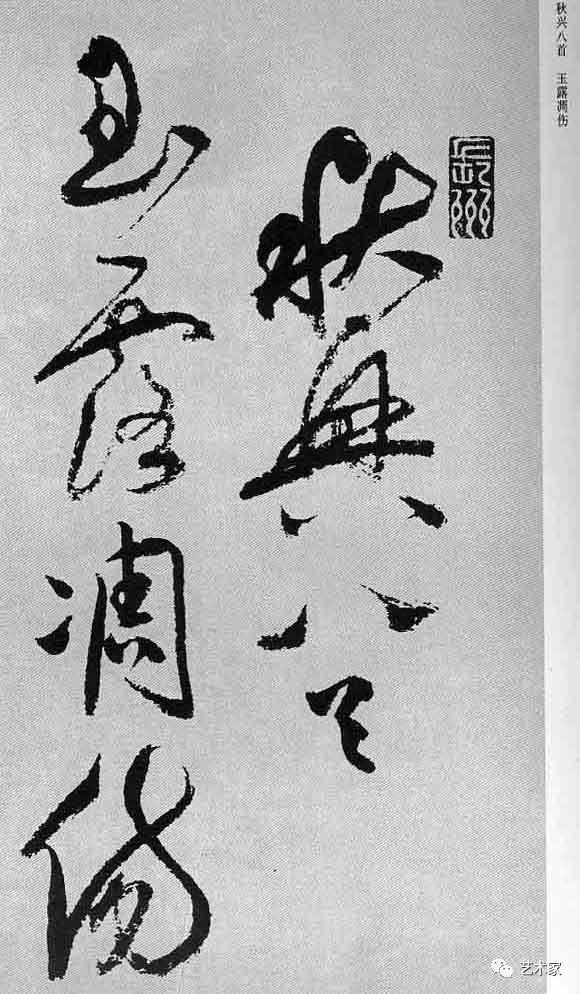 秋兴八首 玉露凋伤
秋興八首
玉露凋傷
艺术家